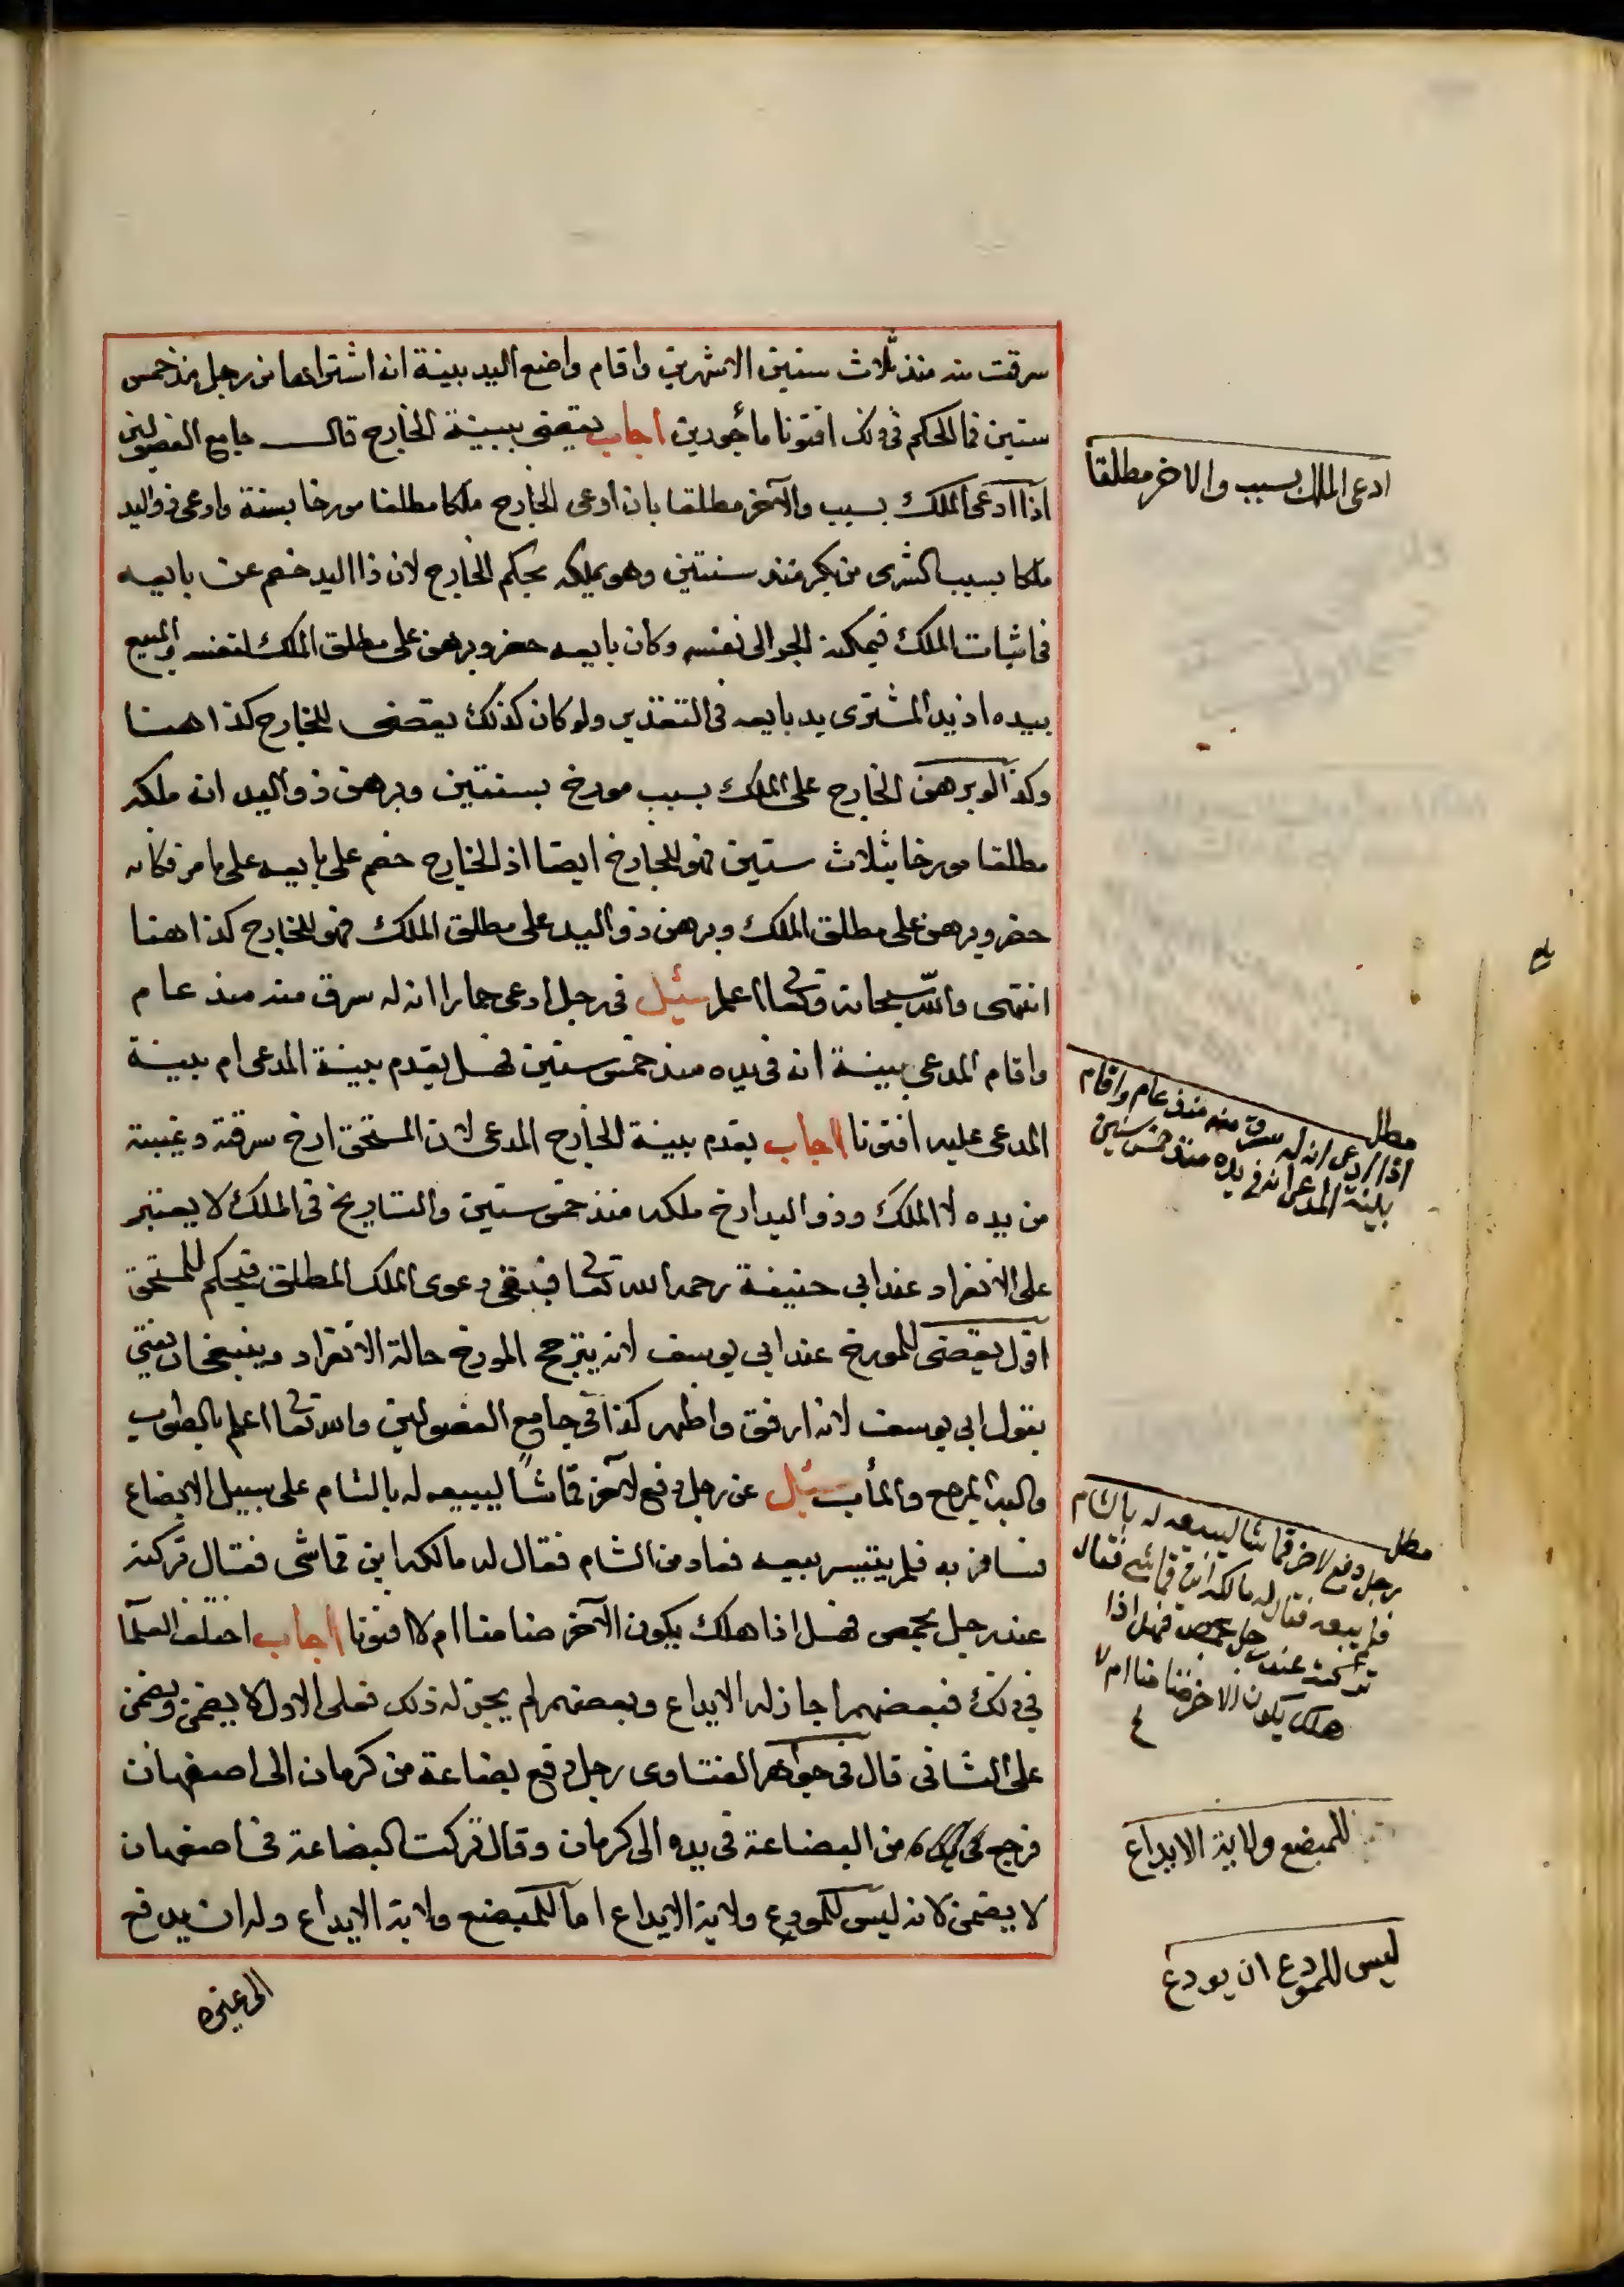 سرقت منه منذ ثلاث سنين الا شهرين واقام واضع اليد بينة انه اشتراها من رجل منذ خمس
سنين فما الحكم في ذلك افتونا مأجورين اجاب يقضى ببينة الخارج قال جامع الفصولين
اذا ادعى الملك بسبب والآخر مطلقا بان ادعى الخارج ملكا مطلقا مورخا بسنة وادعى ذو اليد
ملكا بسبب كشرى من بكر منذ سنتين وهو يملكه يحكم للخارج لان ذا اليد خصم عن بايعه
في اثبات الملك فيمكنه الجر الى نفسه وكان بايعه حضر وبرهن على مطلق الملك لنفسه والمبيع
بيده اذ يد المشترى يد بايعه في التقدير ولو كان كذلك يقضى للخارج كذا هنا
وكذا لو برهن الخارج على الملك بسبب مورخ بسنتين وبرهن ذو اليد انه ملكه
مطلقا مورخا بثلاث سنين فهو للخارج ايضا اذ الخارج خصم على بايعه على ما مر فكانه
حضر وبرهن على مطلق الملك وبرهن ذو اليد على مطلق الملك فهو للخارج كذا هنا
انتهى والله سبحانه وتعا اعلم سئل في رجل ادعى حمارا انه له سرق منه منذ عام
واقام المدعى بينة انه في يده منذ خمس سنين فهل يقدم بينة المدعى ام بينة
المدعى عليه افتونا اجاب يقدم بينة الخارج المدعى لان المستحق ارخ سرقته وغيبته
من يده لا الملك وذو اليد ارخ ملكه منذ خمس سنين والتاريخ في الملك لا يعتبر
على الانفراد عند ابي حنيفة رحمه الله تعا فبقى دعوى الملك المطلق فيحكم للمستحق
اقول يقضى للمورخ عند ابي يوسف لانه يترجح المورخ حالة الانفراد وينبغي ان يفتى
بقول ابي يوسف لانه ارفق واظهر كذا في جامع الفصولين والله تعا اعلم بالصواب
واليه المرجع والمأب سئل عن رجل دفع لآخر قماشاً ليبيعه له بالشام على سبيل الابضاع
فسافر به فلم يتيسر بيعه فعاد من الشام فقال له مالكه اين قماشي فقال تركته
عند رجل بحمص فهل اذا هلك يكون الآخر ضامنا ام لا افتونا اجاب اختلف العلما
في ذلك فبعضهم اجاز له الايداع وبعضهم لم يجز له ذلك فعلى الاول لا يضمن ويضمن
على الثاني قال في جواهر الفتاوى رجل دفع بضاعة من كرمان الى اصفهان
فرجع من البضاعة في يده الى كرمان وقال تركت البضاعة في اصفهان
لا يضمن لانه ليس للمودع ولاية الايداع اما للمبضع ولاية الايداع وله ان يدفع
الى غيره
ادعى الملك بسبب والاخر مطلقا
مطل
اذا ادعى انه له سرق منه منذ عام واقام
بينة المدعى انه في يده منذ خمس سنين
مطل
رجل دفع لاخر قماشا ليبيعه له بالشام
فلم يبعه فقال له مالكه اين قماشي فقال
تركته عند رجل بحمص فهل اذا
هلك يكون الاخر ضامنا ام لا
للمبضع ولاية الايداع
ليس للمودع ان يودع